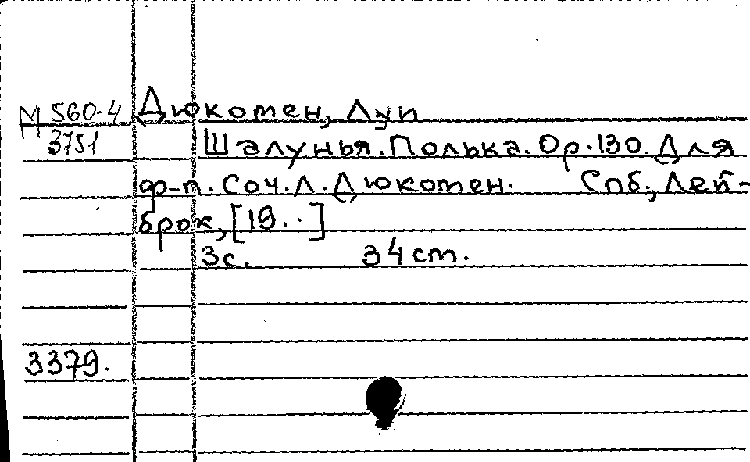 М 560-4 Дюкотен, Луи
3751 Шалунья. Полька. Op. 130. Для
ф-п. Соч. Л. Дюкотен. Спб., Лей-
брок, [19..]
3с. 34 ст.
3379.